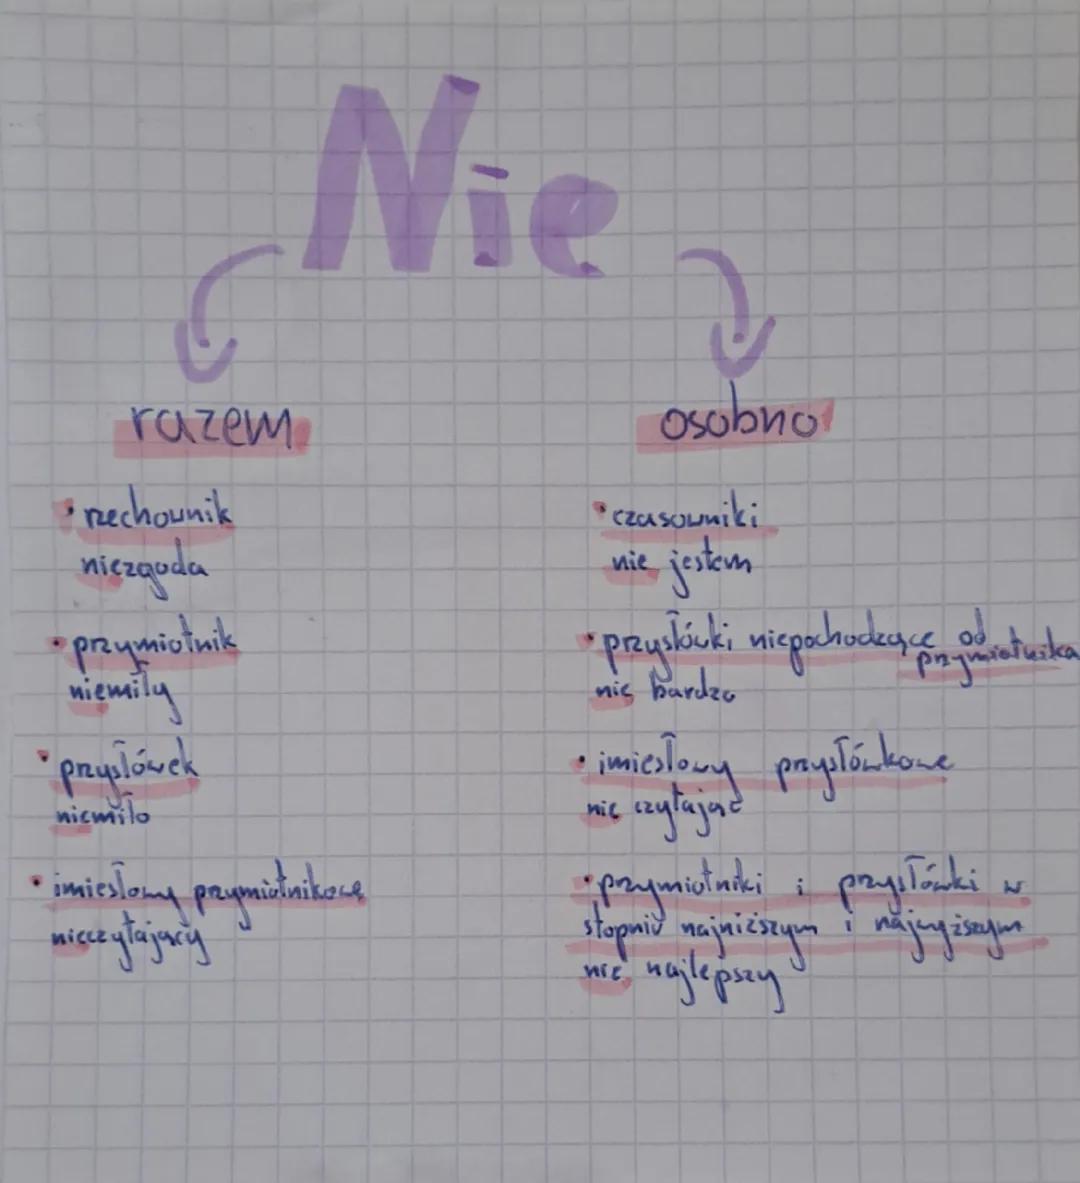 Nie
razem
osobno
• rzechownik
niezgoda
• przymiotnik
niemiły
• przysłówek
niemiło
• imiesłowy przymiotnikowe
nieczytający
• czasowniki
nie jestem
• przysłówki niepochodzące od przymiotnika
nie bardzo
• imiesłowy przysłówkowe
nie czytając
• przymiotniki i przysłówki w
stopniu najniższym i najwyższym
nie najlepszy